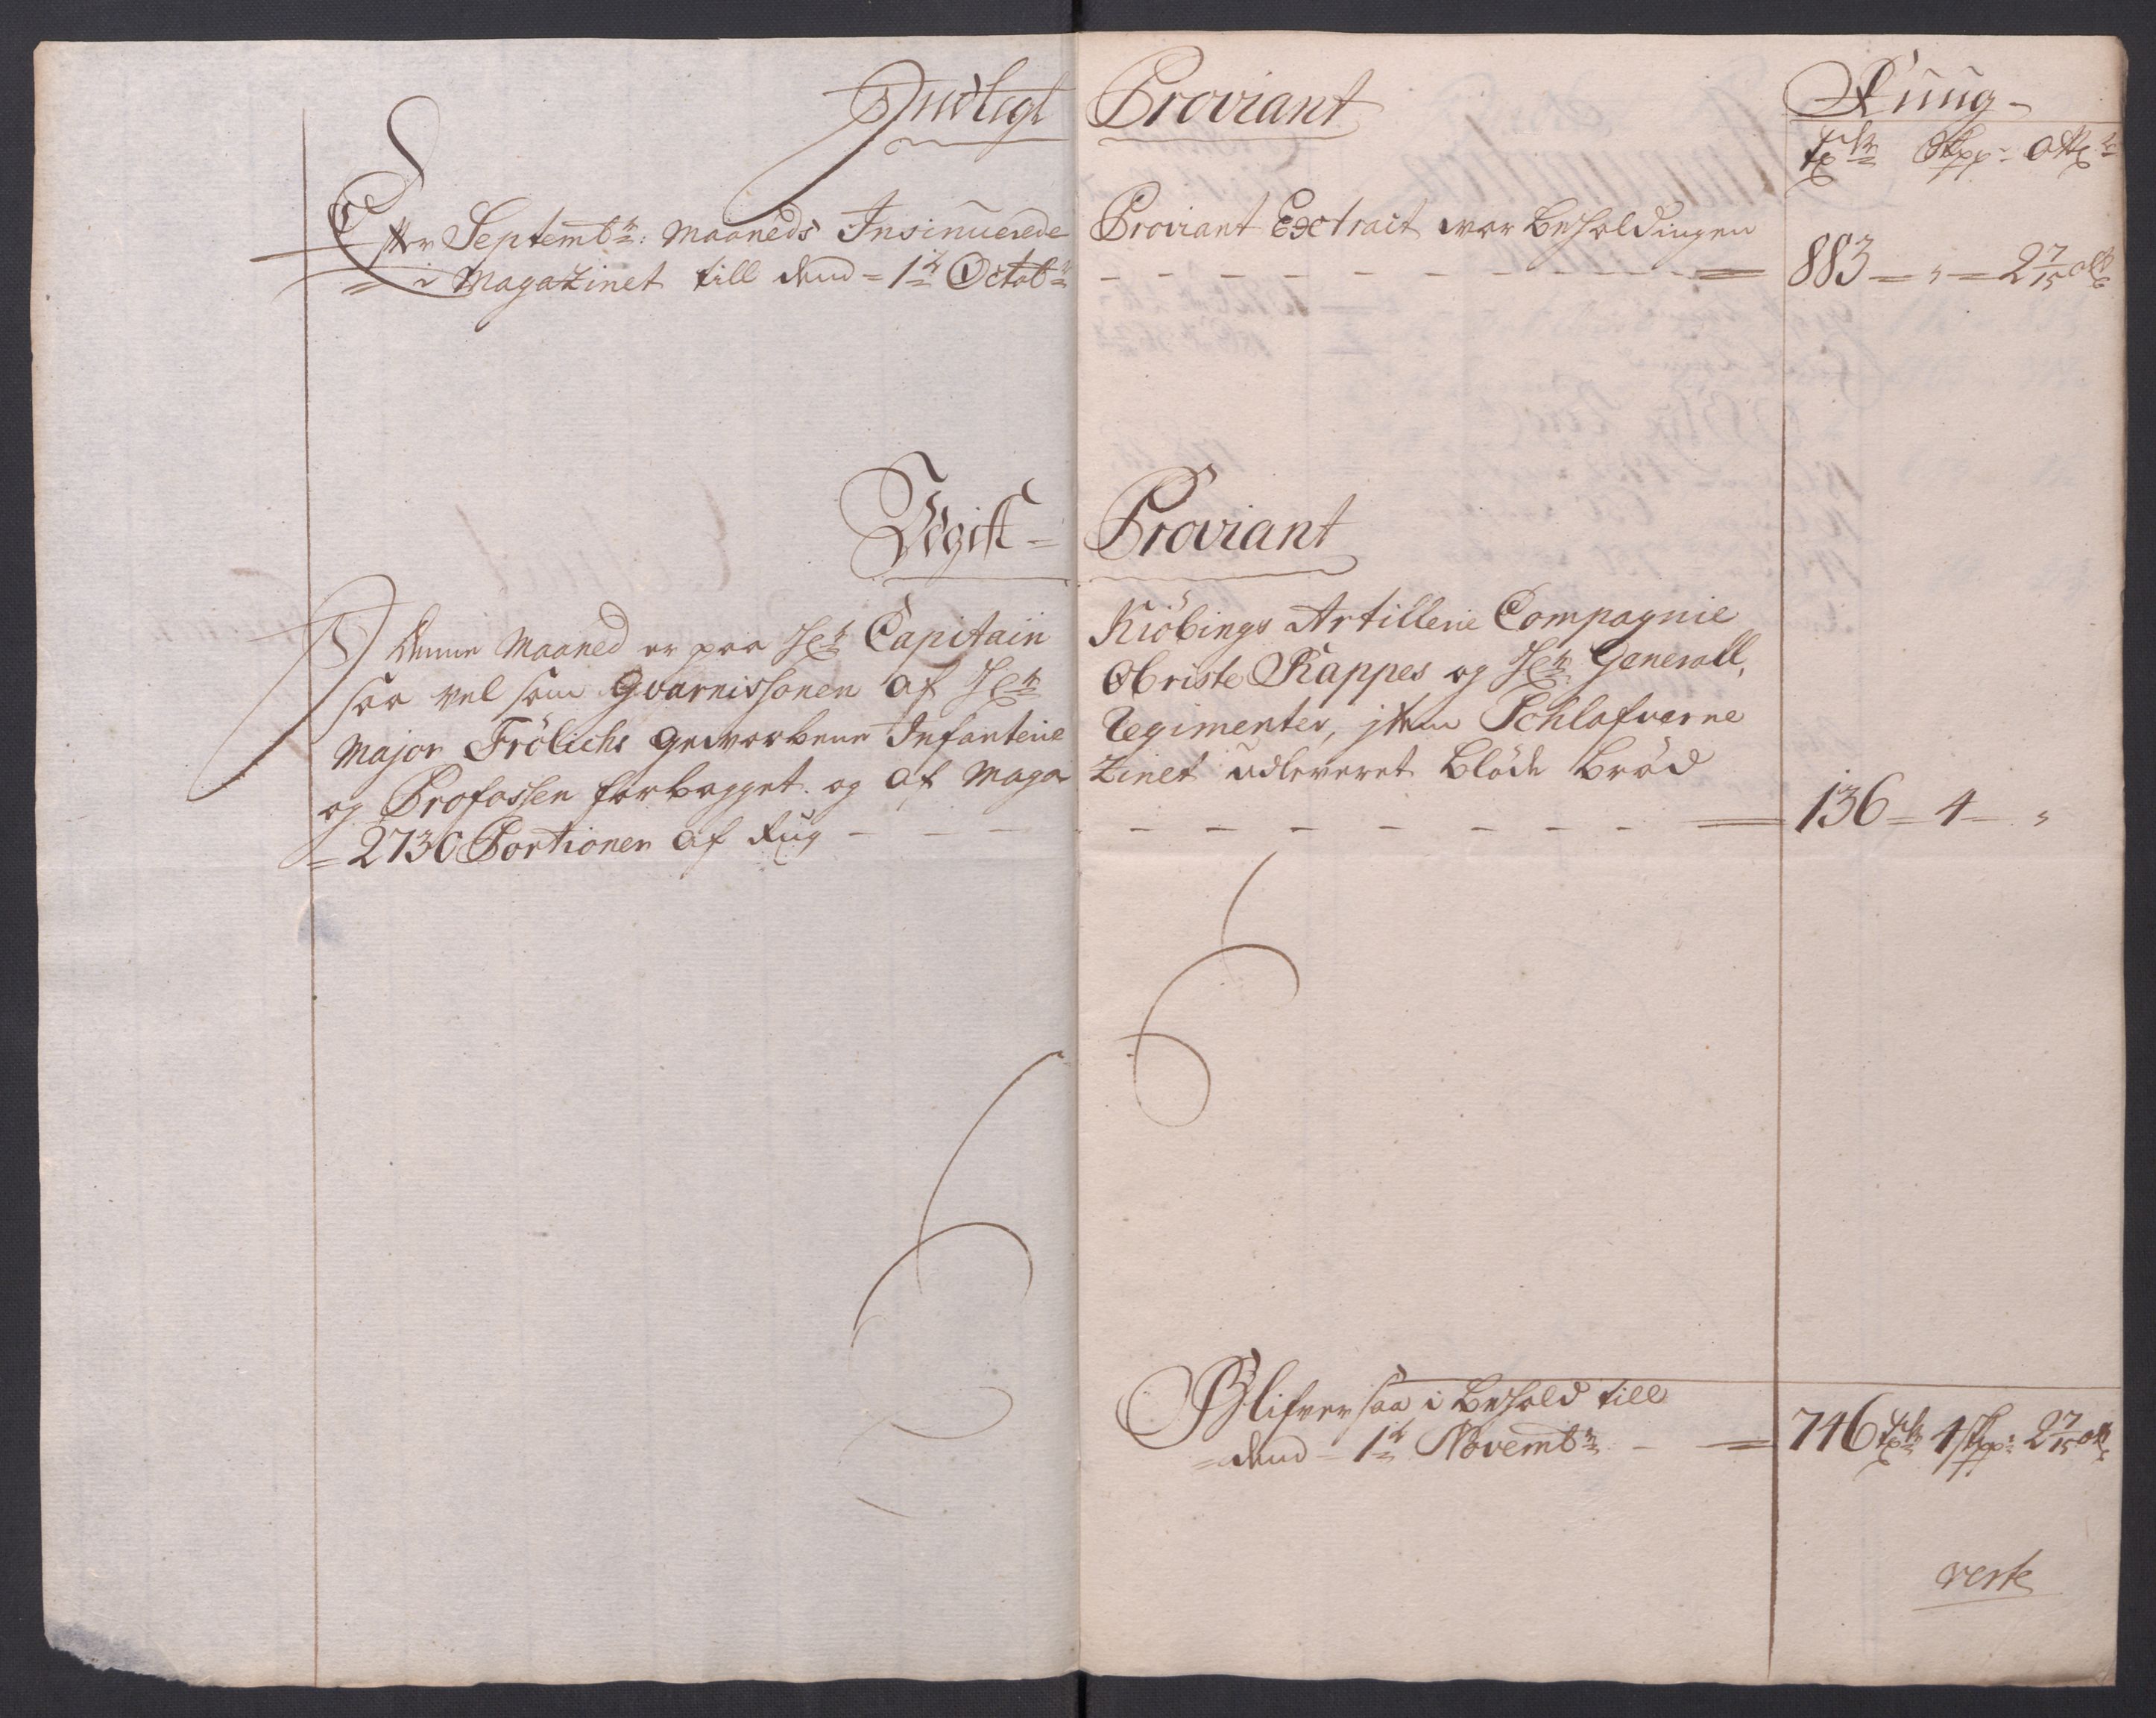 Indtegt Proviant
Ruug
tr skpr: ottr
Efter Septembr: Maaneds Insinuerede Proviant Extract war beholdingen
i Magazinet till dend 1te Octobr 883 = " = 2 7/15 ott
Udgift Proviant
I denne Maaned er paa Hr Capitain Kiöbings Artillerie Compagnie
saa vel som Gvarnissonen af Hr Obriste Kappes og Hr Generall
Major Frölichs gevorbene Infanterie Regimenter, jtem Schlafverne
og Profossen forbagget og af Maga zinet udleveret blöde bröd
2730 Portioner af Rug 136 = 4 = "
Blifver saa i behold till
dend 1te Novembr 746 tr 4 skpr: 2 7/15 ott
verte